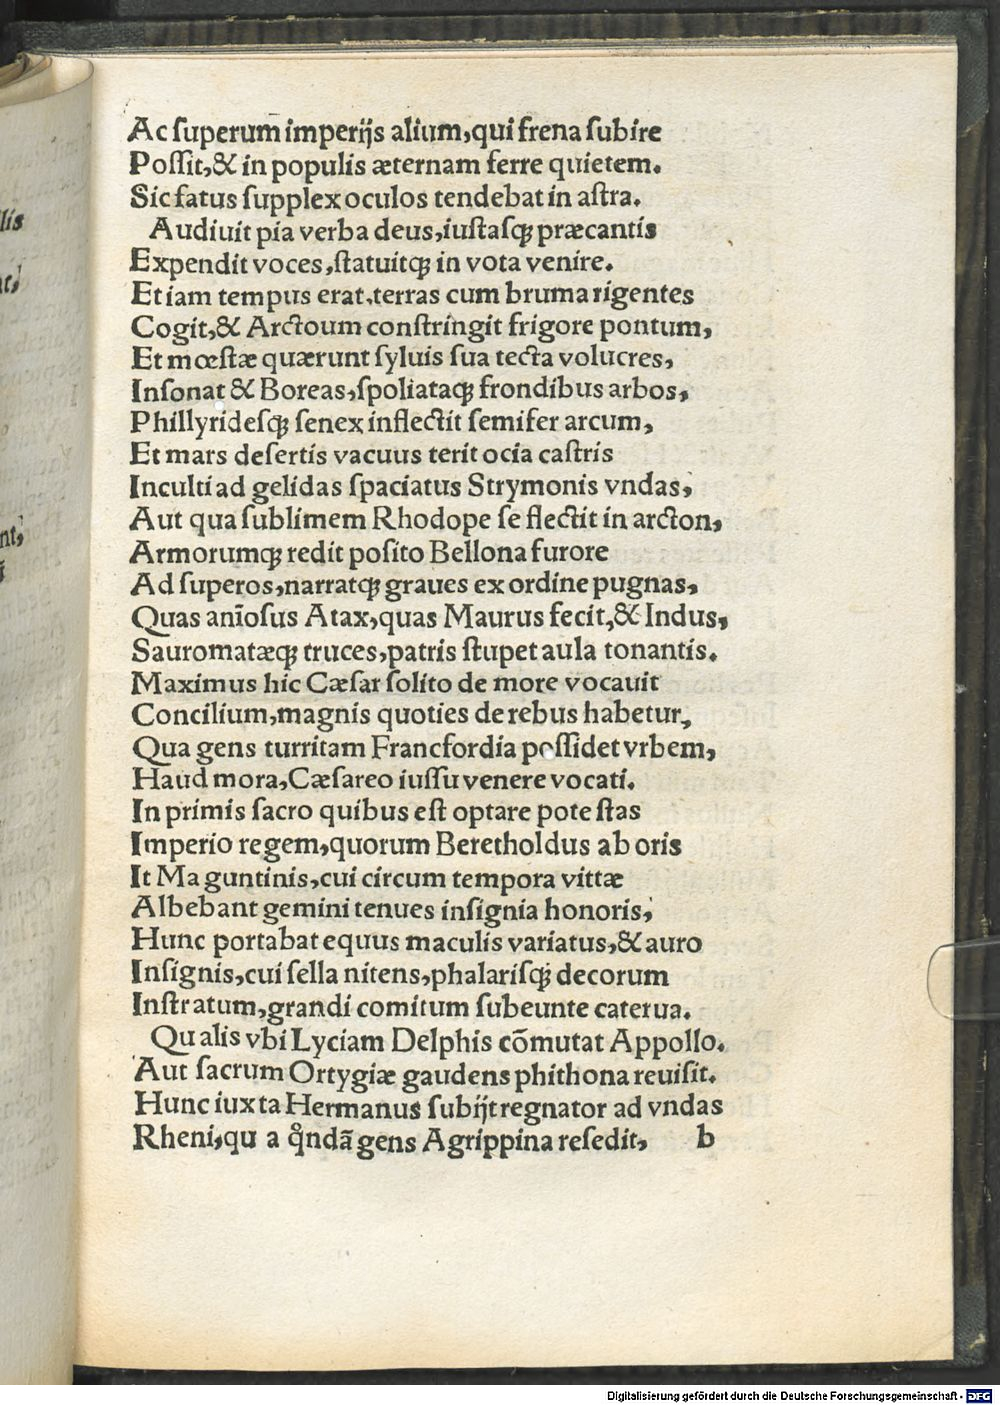 Ac ſuperum imperijs alium,qui frena ſubire
Poſſit,& in populis æternam ferre quietem.
Sic fatus ſupplex oculos tendebat in aſtra.
Audiuit pia verba deus,iuſtaſqꝫ præcantis
Expendit voces,ſtatuitqꝫ in vota venire.
Et iam tempus erat,terras cum bruma rigentes
Cogit,& Arctoum conſtringit frigore pontum,
Et mœſtæ quærunt ſyluis ſua tecta volucres,
Inſonat & Boreas,ſpoliataqꝫ frondibus arbos,
Phillyrideſqꝫ ſenex inflectit ſemifer arcum,
Et mars deſertis vacuus terit ocia caſtris
Inculti ad gelidas ſpaciatus Strymonis vndas,
Aut qua ſublimem Rhodope ſe flectit in arcton,
Armorumqꝫ redit poſito Bellona furore
Ad ſuperos,narratqꝫ graues ex ordine pugnas,
Quas anīoſus Atax,quas Maurus fecit,& Indus,
Sauromatæqꝫ truces,patris ſtupet aula tonantis.
Maximus hic Cæſar ſolito de more vocauit
Concilium,magnis quoties de rebus habetur,
Qua gens turritam Francfordia poſſidet vrbem,
Haud mora,Cæſareo iuſſu venere vocati.
In primis ſacro quibus eſt optare poteſtas
Imperio regem,quorum Beretholdus ab oris
It Maguntinis,cui circum tempora vittæ
Albebant gemini tenues inſignia honoris,
Hunc portabat equus maculis variatus,& auro
Inſignis,cui ſella nitens,phalariſqꝫ decorum
Inſtratum,grandi comitum ſubeunte caterua.
Qualis vbi Lyciam Delphis cōmutat Appollo.
Aut ſacrum Ortygiæ gaudens phithona reuiſit.
Hunc iuxta Hermanus ſubijt regnator ad vndas
Rheni,qua qͦndā gens Agrippina reſedit, b
Digitalisierung gefördert durch die Deutsche Forschungsgemeinschaft - DFG